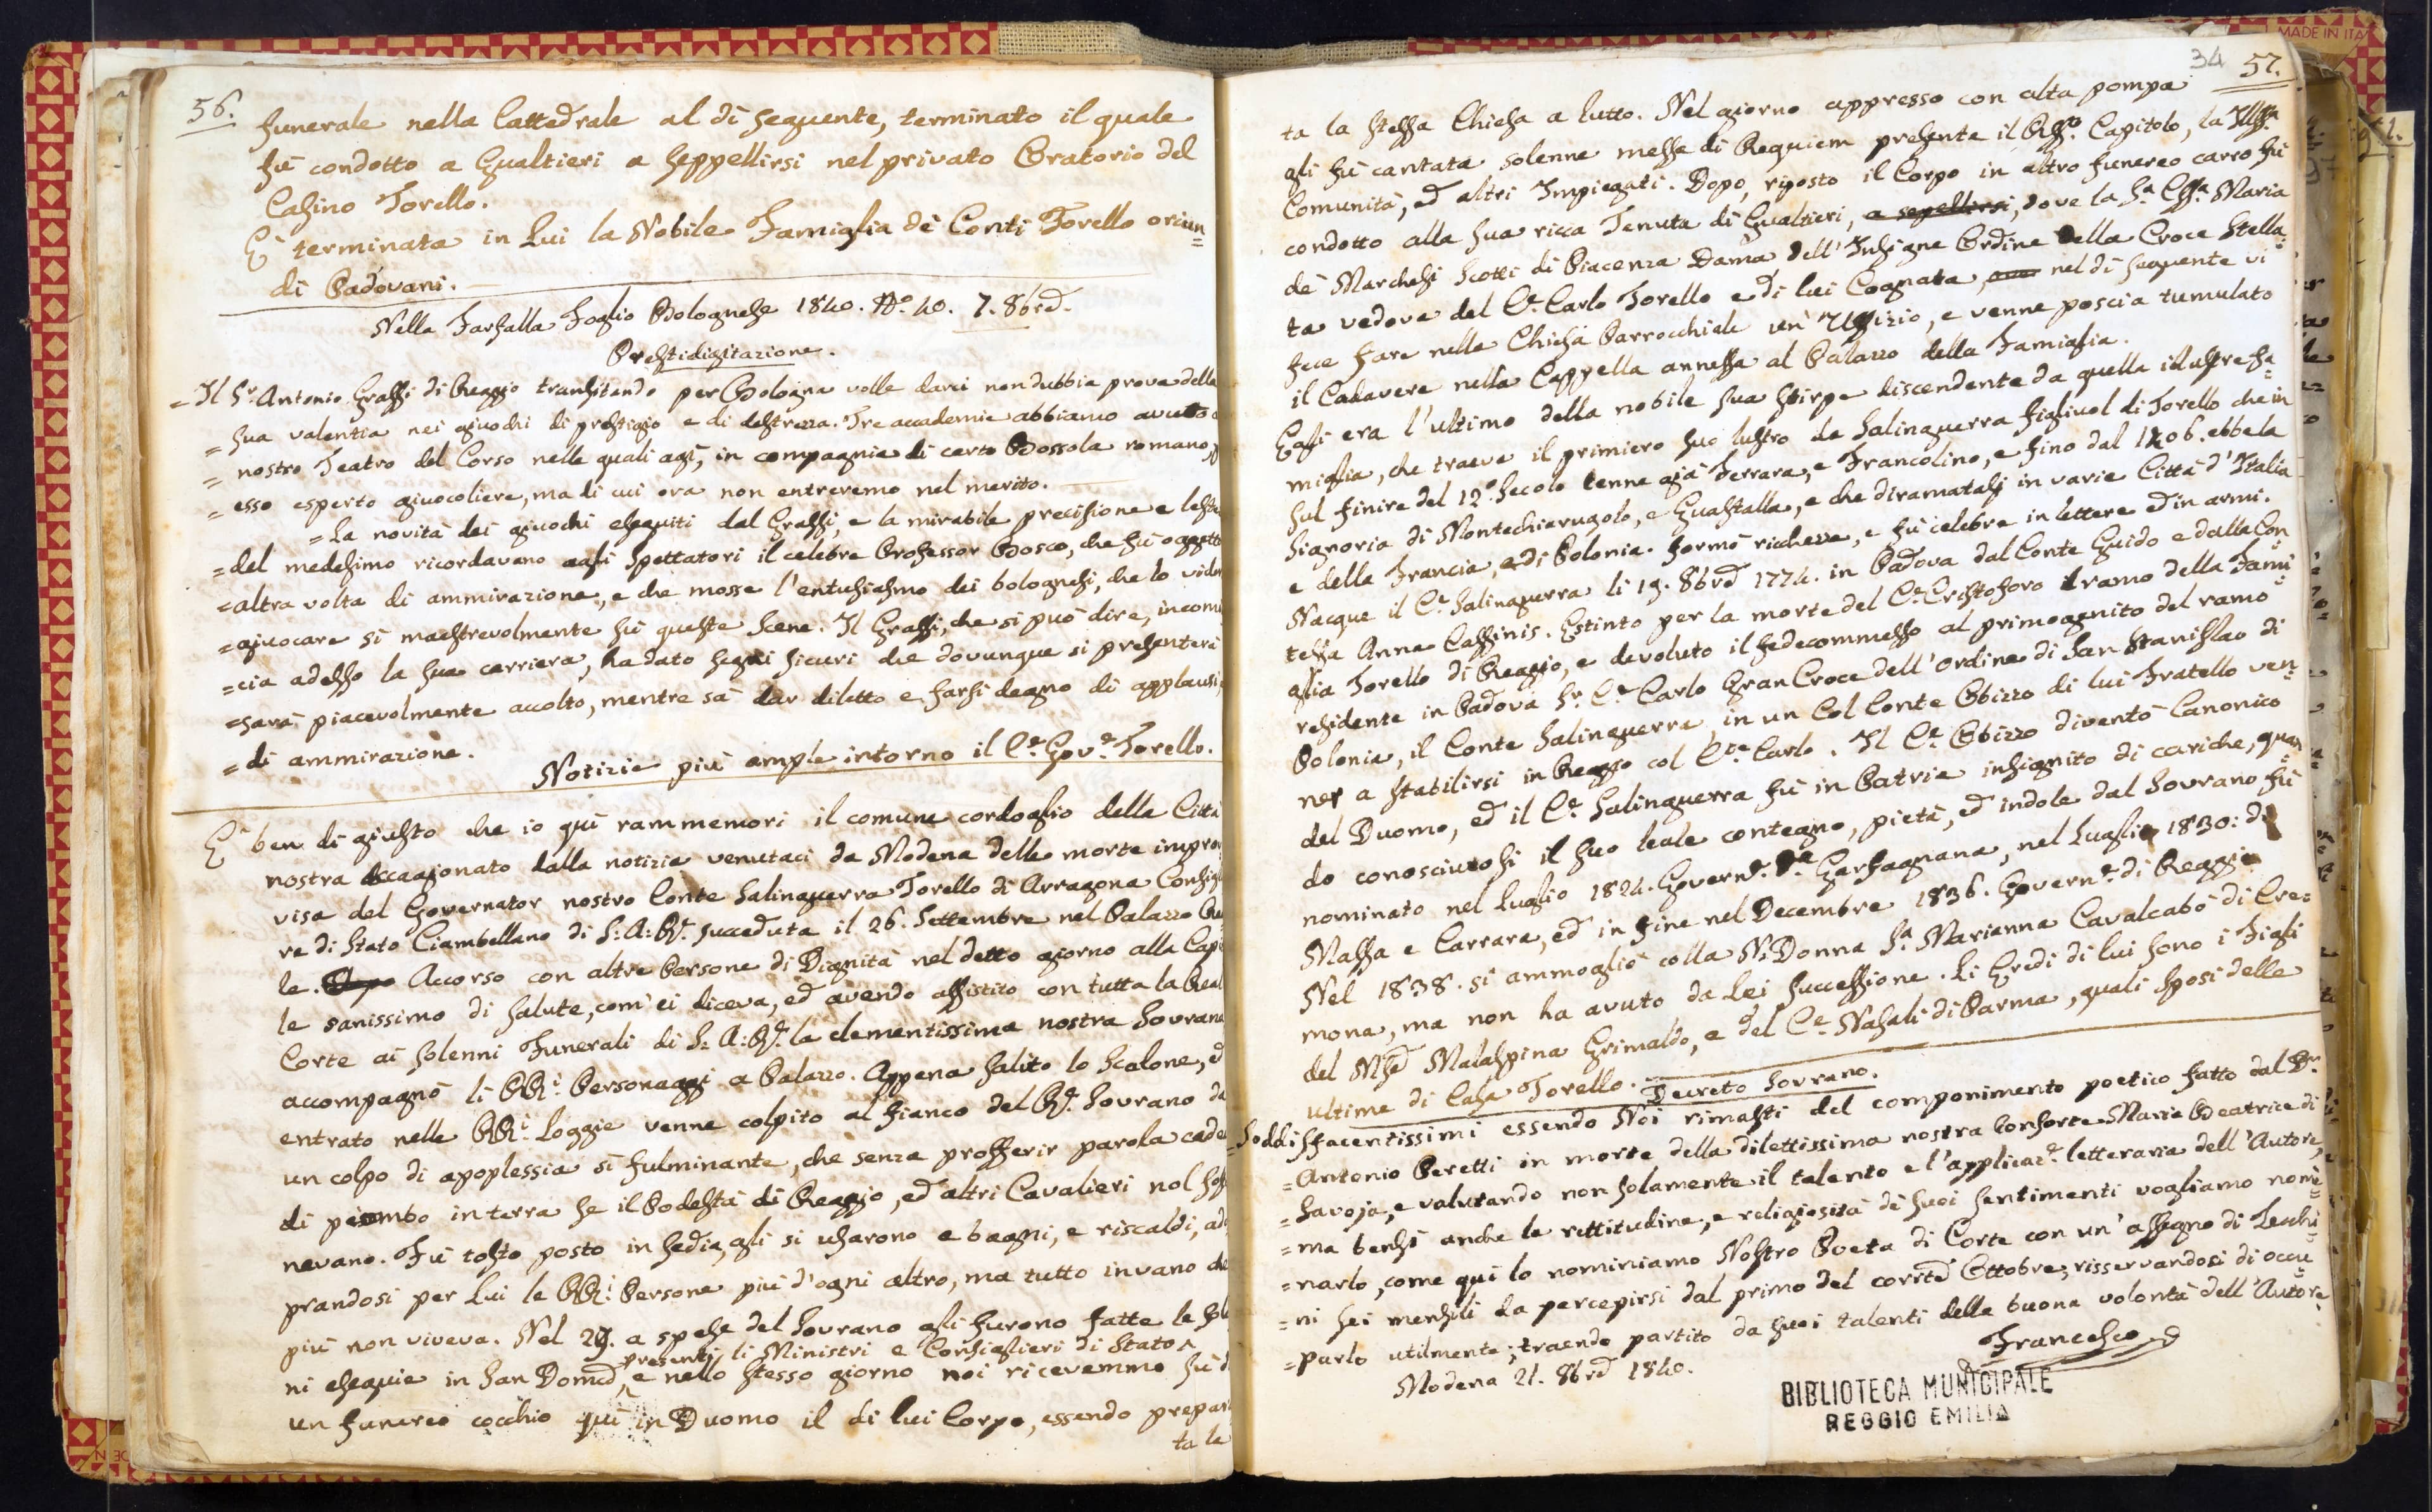 56.
funerale nella Cattedrale al dì seguente, terminato il quale
fù condotto a Gualtieri a seppellirsi nel privato Oratorio del
Casino Torello.
È terminata in Lui la Nobile Famiglia dè Conti Torello oriun=
di Padovani.
Nella Farfalla Foglio Bolognese 1840. No. 40. 7. 8brē.
Prestidigitazione.
= Il Sr. Antonio Grassi di Reggio transitando per Bologna volle darci non dubbia prova della
= sua valentia nei giuochi di prestigio e di destrezza. Tre accademie abbiamo avuto
= nostro Teatro del Corso nelle quali agì, in compagnia di certo Bossola romano,
= esso esperto giuocoliere, ma di cui ora non entreremo nel merito.
= La novità dei giuochi eseguiti dal Grassi, e la mirabile precisione e
= del medesimo ricordavano agli Spettatori il celebre Professor Bosco, che fù oggetto
= altra volta di ammirazione, e che mosse l'entusiasmo dei bolognesi, che lo
= giuocare sì maestrevolmente sù queste Scene. Il Grassi, che si può dire, incomin
= cia adesso la sua carriera, ha dato segni sicuri che dovunque si presenterà
= sarà piacevolmente accolto, mentre sà dar diletto e farsi degno di applausi,
= di ammirazione.
Notizie più ample intorno il Ce. Gove. Torello.
È ben di giusto che io quì rammemori il comune cordoglio della Città
nostra occagionato dalla notizia venutaci da Modena della morte improv
visa del Governator nostro Conte Salinguerra Torello di Arragona Consiglie
re di Stato Ciambellano di S: A: Re. succeduta il 26. Settembre nel Palazzo Rea
le. Dopo Accorso con altre Persone di Dignità nel detto giorno alla Capi
le sanissimo di salute, com'ei diceva, ed avendo assistito con tutta la Real
Corte ai solenni Funerali di S: A: Re. la clementissima nostra Sovrana
accompagnò li RRi. Personaggi a Palazzo. Appena salito lo Scalone, ed
entrato nelle RRi. Loggie venne colpito al fianco del Re. Sovrano da
un colpo di apoplessia sì fulminante, che senza profferir parola cade
di piombo in terra se il Podestà di Reggio, ed altri Cavalieri nol soste
nevano. Fù tosto posto in sedia, gli si usarono e bagni, e riscaldi, ado
prandosi per Lui le RRi. Persone più d'ogni altro, ma tutto invano che
più non viveva. Nel 29. a spese del Sovrano gli furono fatte le Solen
presenti li Ministri e Consiglieri di Stato
ni esequie in San Domcō, e nello stesso giorno noi ricevemmo sù d
un funereo cocchio quì in Duomo il di lui Corpo, essendo prepar
ta la
34
57.
ta la stessa Chiesa a lutto. Nel giorno appresso con alta pompa
gli fù cantata solenne messa di Requiem presente il Rssō. Capitolo, la Illssā.
Comunità, ed altri Impiegati. Dopo, riposto il Corpo in altro funereo carro fù
condotto alla sua ricca Tenuta di Gualtieri, a sepellirsi, dove la Sa. Cssa. Maria
dè Marchesi Scotti di Piacenza Dama dell'Insigne Ordine della Croce Stella
ta vedova del Ce. Carlo Torello e di lui Cognata, nel dì seguente vi
fece fare nella Chiesa Parrocchiale un' Uffizio, e venne poscia tumulato
il Cadavere nella Cappella annessa al Palazzo della Famiglia.
Egli era l'ultimo della nobile sua stirpe discendente da quella illustre fa=
miglia, che traeva il primiero suo lustro da Salinguerra figliuol di Torello che in
sul finire del 12o. Secolo tenne già Ferrara, e Francolino, e fino dal 1406. ebbe la
Signoria di Montechiarugolo, e Guastalla, e che diramatasi in varie Città d'Italia
e della Francia, e di Polonia. formò ricchezze, e fù celebre in lettere ed in armi.
Nacque il Ce. Salinguerra li 19. 8brē 1774. in Padova dal Conte Guido e dalla Con
tessa Anna Cassinis. Estinto per la morte del Ce. Cristoforo il ramo della Fami
glia Torello di Reggio, e devoluto il fedecommesso al primogenito del ramo
residente in Padova Sr. Ce. Carlo Gran Croce dell'Ordine di San Stanislao di
Polonia, il Conte Salinguerra, in un Col Conte Obizzo di lui Fratello ven=
ner a stabilirsi in Reggio col Cte. Carlo. Il Ce. Obizzo diventò Canonico
del Duomo, ed il Ce. Salinguerra fù in Patria insignito di cariche, quan
do conosciutosi il suo leale contegno, pietà, ed indole dal Sovrano fù
nominato nel Luglio 1824. Governe. Garfagnana, nel Luglio 1830: di
Massa e Carrara, ed in fine nel Decembre 1836. Governe. di Reggio
Nel 1838. si ammogliò colla N. Donna Sa. Marianna Cavalcabò di Cre=
mona, ma non ha avuto da Lei successione. Li Eredi di lui sono i Figli
del Mse Malaspina Grimaldo, e del Ce. Nasali di Parma, quali sposi delle
ultime di Casa Torello.
Decreto Sovrano.
= Soddisffacentissimi essendo Noi rimasti del componimento poetico fatto dal Dr.
= Antonio Peretti in morte della dilettissima nostra Consorte Maria Beatrice di
= Savoja, e valutando non solamente il talento e l'applicaze. letteraria dell'Autore,
= ma bensì anche le rettitudine, e religiosità dè suoi sentimenti vogliamo nomi=
= narlo, come quì lo nominiamo Nostro Poeta di Corte con un' assegno di Zecchi=
= ni sei mensili da percepirsi dal primo del corrtē Ottobre, risservandosi di occu=
= parlo utilmente, traendo partito da suoi talenti della buona volontà dell'Autore.
Modena 21. 8brē 1840.
Francesco
BIBLIOTECA MUNICIPALE
REGGIO EMILIA
MADE IN ITA